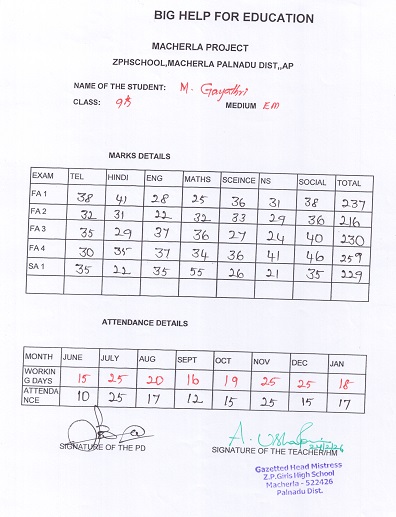 BIG HELP FOR EDUCATION
MACHERLA PROJECT
ZPHSCHOOL,MACHERLA PALNADU DIST,,AP
NAME OF THE STUDENT: M. Gayathri
CLASS: 9th MEDIUM EM
MARKS DETAILS
EXAM TEL HINDI ENG MATHS SCEINCE NS SOCIAL TOTAL
FA 1 38 41 28 25 36 31 38 237
FA 2 32 31 22 32 33 29 36 216
FA 3 35 29 37 36 27 24 40 230
FA 4 30 35 37 34 36 41 46 259
SA 1 35 22 35 55 26 21 35 229
ATTENDANCE DETAILS
MONTH JUNE JULY AUG SEPT OCT NOV DEC JAN
WORKIN
G DAYS 15 25 20 16 19 25 25 18
ATTENDA
NCE 10 25 17 12 15 25 15 17
SIGNATURE OF THE PD
SIGNATURE OF THE TEACHER/HM
Gazetted Head Mistress
Z.P.Girls High School
Macherla - 522426
Palnadu Dist.